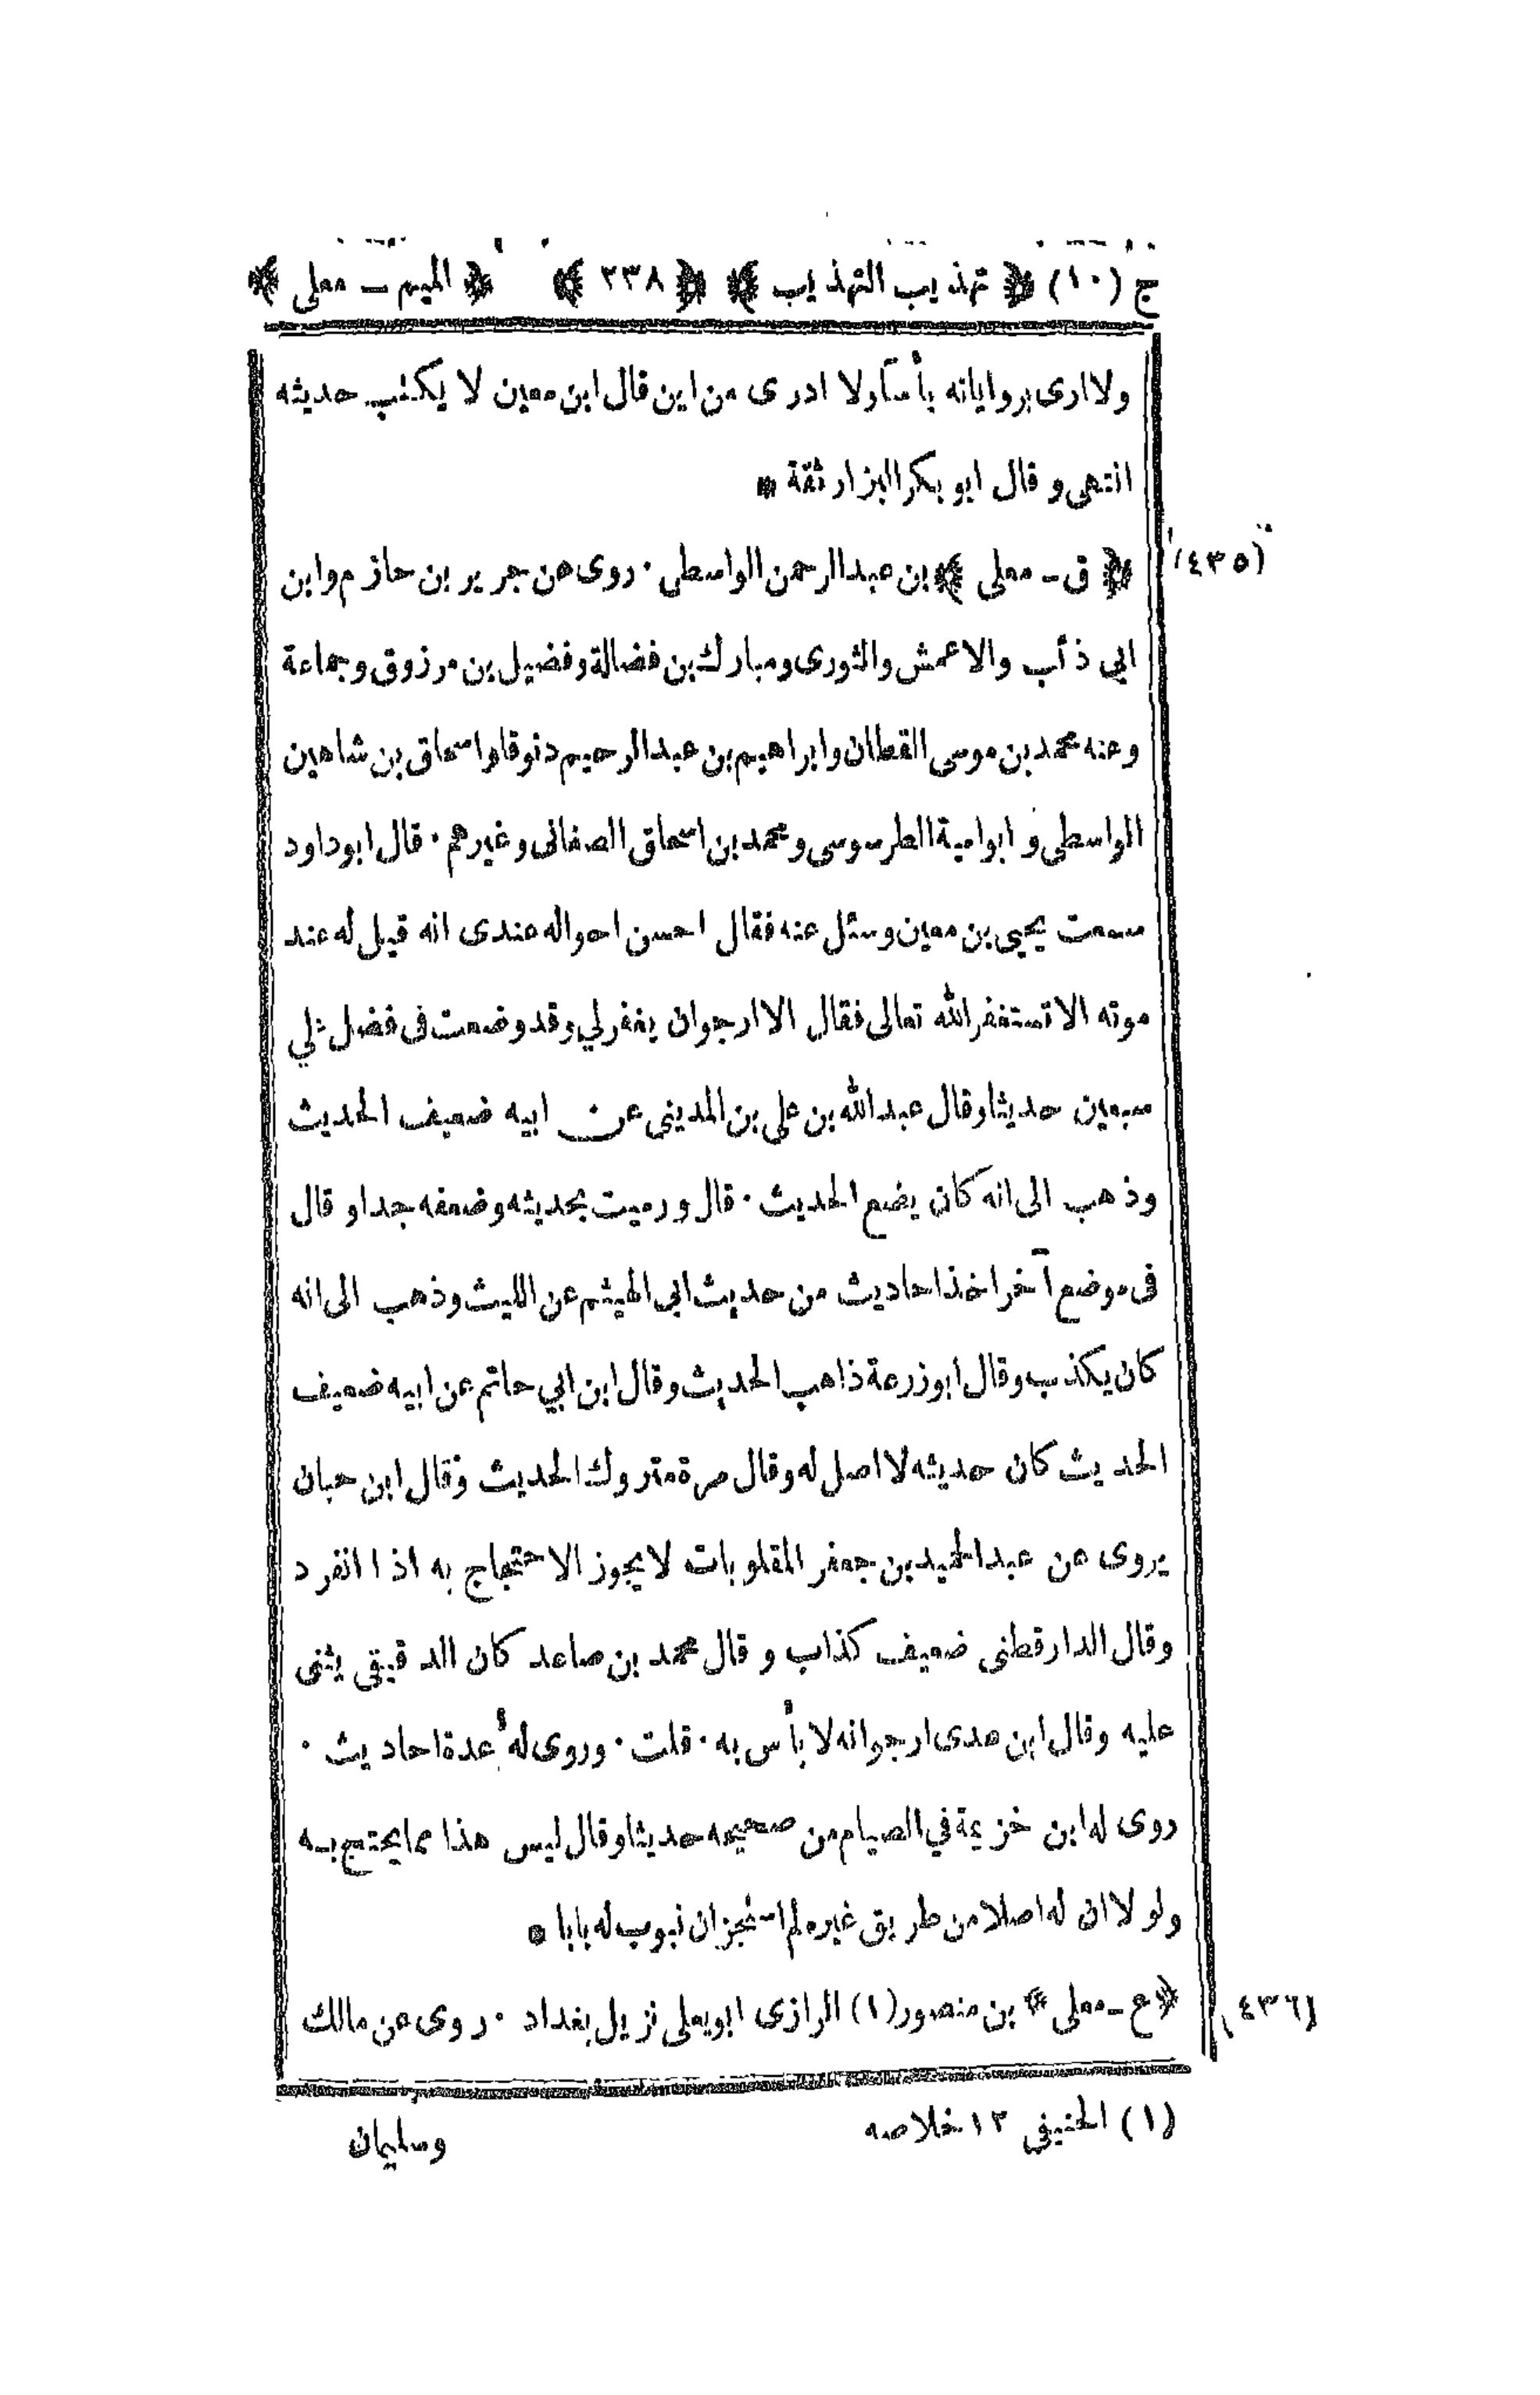 ج (١٠) ﴿ تهذيب التهذيب ﴾ ﴿ ٢٣٨ ﴾ ﴿ الميم – معلى ﴾
ولا ارى برواياته بأسا ولا ادرى من اين قال ابن معين لا يكتب حديثه
انتهى وقال ابو بكر البزار ثقة *
(٤٣٥) ﴿ ق – معلى ﴾ بن عبد الرحمن الواسطى ٠ روى عن جرير بن حازم وابن
ابي ذئب والاعمش والثورى ومبارك بن فضالة وفضيل بن مرزوق وجماعة
وعنه محمد بن موسى القطان وابراهيم بن عبد الرحيم دنوقا واسحاق بن شاهين
الواسطى و ابو امية الطرسوسى ومحمد بن اسحاق الصغانى وغيرهم ٠ قال ابو داود
سمعت يحيى بن معين وسئل عنه فقال احسن احواله عندى انه قيل له عند
موته الا تستغفر الله تعالى فقال الا ارجو ان يغفر لي وقد وضعت فى فضل علي
سبعين حديثا وقال عبد الله بن علي بن المدينى عن ابيه ضعيف الحديث
وذهب الى انه كان يضع الحديث ٠ قال ورميت بحديثه وضعفه جدا وقال
فى موضع آخر اخذ احاديث من حديث ابي الهيثم عن الليث وذهب الى انه
كان يكذب وقال ابو زرعة ذاهب الحديث وقال ابن ابي حاتم عن ابيه ضعيف
الحديث كان حديثه لا اصل له وقال مرة متروك الحديث وقال ابن حبان
يروى عن عبد الحميد بن جعفر المقلوبات لا يجوز الاحتجاج به اذا انفرد
وقال الدارقطنى ضعيف كذاب وقال محمد بن صاعد كان الدقيقى يثنى
عليه وقال ابن عدى ارجو انه لا بأس به ٠ قلت ٠ وروى له عدة احاديث ٠
روى له ابن خزيمة في الصيام من صحيحه حديثا وقال ليس هذا مما يحتج به
ولو لا ان له اصلا من طريق غيره لم استجز ان نبوب له بابا *
(٤٣٦) ﴿ ع – معلى ﴾ بن منصور (١) الرازى ابو يعلى نزيل بغداد ٠ روى عن مالك
(١) الحنيفى ١٢ خلاصه
وسليمان